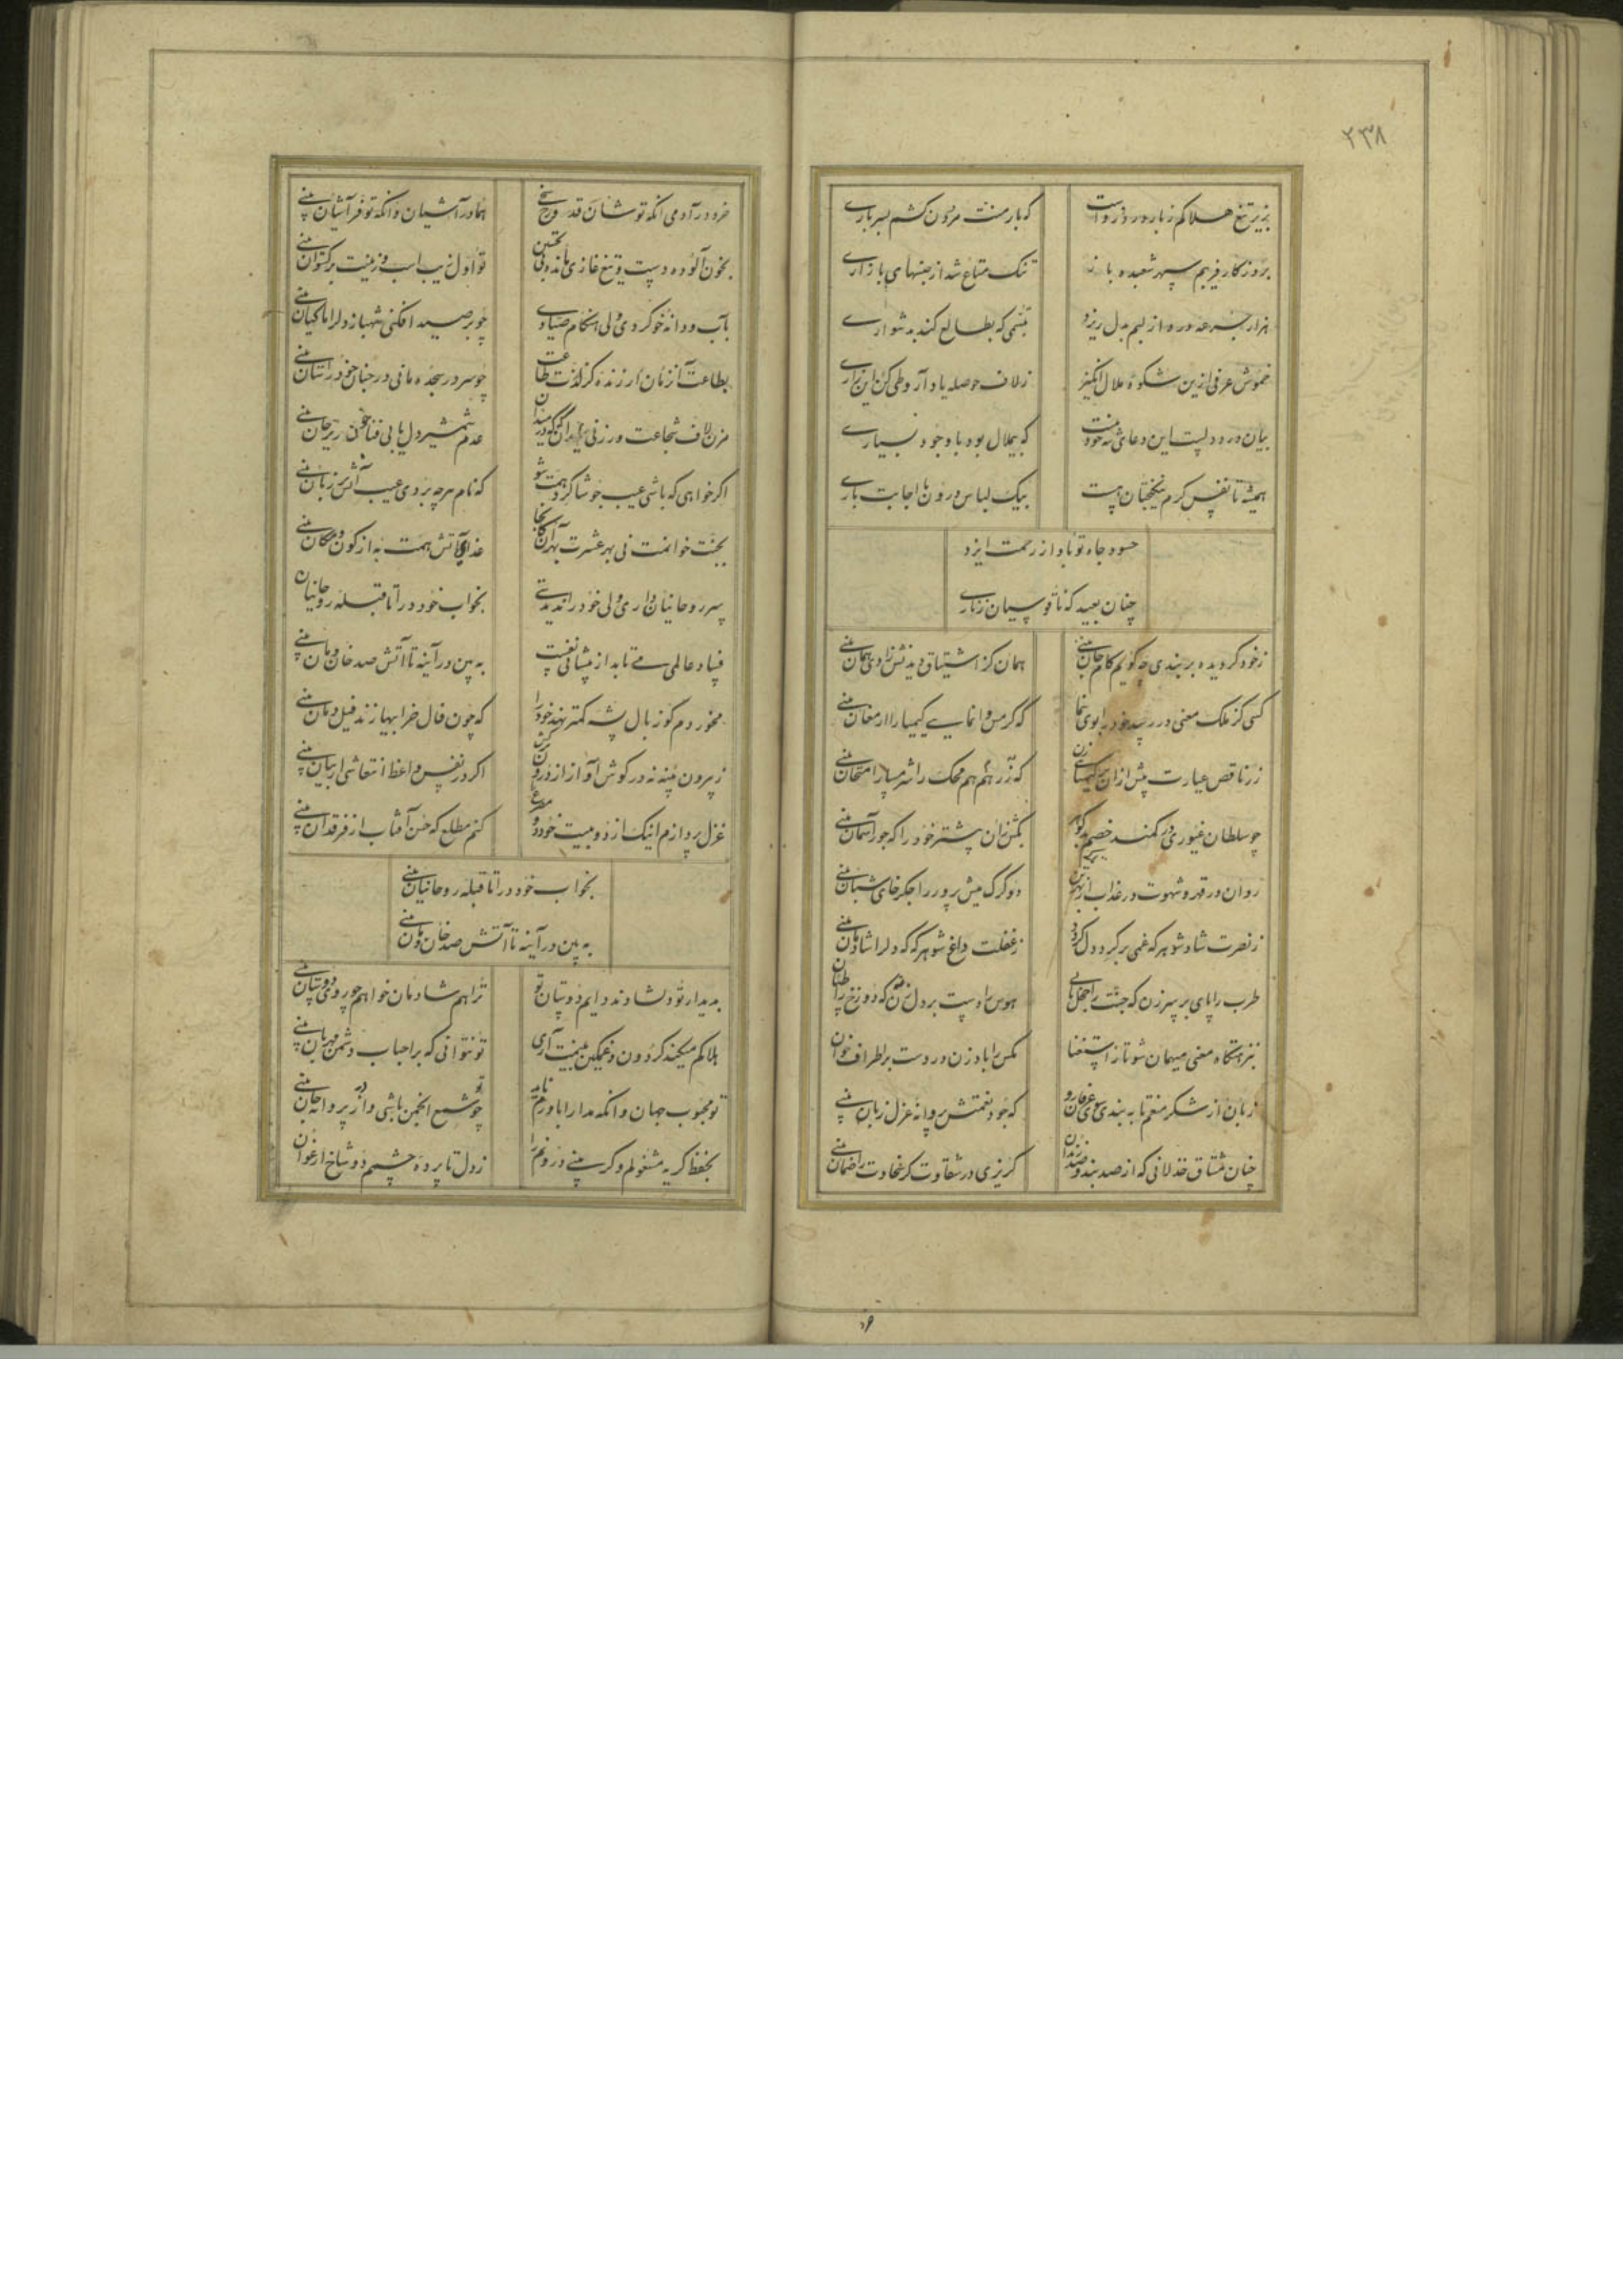 ۲۳۸
بزیر تیغ هلاکم ز بار درد رواست
که بار منت مردن کشم بسرباری
بروزگار فریبم سپهر شعبده باز
تنک متاع شد از جنسهای بازاری
هزار جرعه درد از لبم بدل ریزد
تبسمی که بطالع کند بدشواری
خموش عرفی ازین شکوه ملال انگیز
ز لاف حوصله یاد آر و طی کن این زاری
بیان درد دلست این دعای شه خود نیست
که بیملال بود با وجود بسیاری
همیشه تا نفس کرم نیکبختان هست
بیک لباس درون با اجابت باری
حسود جاه تو باد از رحمت ایزد
چنان بعید که ناقوسیان ز زناری
ز خود کر دیده بر بندی چه کویم کام جان بینی
همان کز اشتیاق دیدنش زادی همان بینی
کسی کز ملک معنی در رسد خود را بوی بنما
که کر مس وانمایی کیمیا را ارمغان بینی
زر ناقص عیارت پیش ازان بر کیمیا زن
که زر هم هم محک را شرمسار امتحان بینی
چو سلطان غیوری در کمند خصم بدکوهر
بکش زان پیشتر خود را که جور آسمان بینی
روان در قهر و شهوت در عذاب از بهر تن
دو کرک میش پرور را جکرخای شبان بینی
ز نصرت شاد شو هرکه غمی بر کرد دل کردد
ز غفلت داغ شو هرکه که دل را شادمان بینی
طرب را پای بر سر زن که جنت را خجل یابی
هوس را دست بر دل نه که دوزخ را طپان
بنزهتکاه معنی میهمان شو تا ز استغنا
مکس را بادزن در دست بر اطراف خوان
زبان از شکر منعم تا به بندی سوی عرفان رو
که خود نعمتش پروانه عزل زبان بینی
چنان مشتاق خذلانی که از صد بند و صد زندان
کریزی در شقاوت کر سخاوت را ضمان بینی
خرد در آدمی انکه تو شان قد و رخ سنجی
هما در آشیان وانکه تو فر آشیان بینی
بخون آلوده دست و تیغ غازی مانده بی تحسین
تو اول زیب اسب و زینت بر کستوان بینی
بآب و دانه خو کردی ولی هنکام صیادی
چو بر صید افکنی شهباز دل را ماکیان بینی
بطاعت آن زمان ارزنده کز لذت طاعت
چو سر در سجده مانی در جنان خود را ستان بینی
مزن لاف شجاعت ور زنی میدان که در میدان
عدم شمشیر دل یابی فنا خونریز جان بینی
اکر خواهی که باشی عیب جو شاکرد همت شو
که نام هرچه بردی عیب آتش بر زبان بینی
بجنت خوانمت نی بهر عشرت بهر آن کانجا
غذای آتش همت به از کون و مکان بینی
سر روحانیان داری ولی خود را ندیدستی
بخواب خود در آ تا قبله روحانیان
فساد عالمی می تابد از پیشانی نفست
به بین در آینه تا آتش صد خان و مان بینی
مخور دم کو ز بال پشه کمتر نهد خود را
که چون فال خرابیها زند فیل دمان بینی
ز بیرون پنبه نه در کوش آواز از درون کش
اکر در نفس واعظ انتعاشی از بیان بینی
غزل پردازم اینک از دو بیت خود دو مصرع
کنم مطلع که حسن آفتاب از فرقدان بینی
بخواب خود در آ تا قبله روحانیان بینی
به بین در آینه تا آتش صد خان و مان بینی
بدیدار تو دلشادند دایم دوستان تو
ترا هم شادمان خواهم چو روی دوستان بینی
هلاکم میکند کردون و غمکین نیستت آری
تو نتوانی که بر احباب دشمن مهربان بینی
تو محبوب جهان وانکه مدارا باورم ناید
چو شمع انجمن باشی و آزر پروانه جان بینی
بحفظ کریه مشغولم و کر بینی درونم را
ز دل تا پرده چشم دو شاخ ارغوان